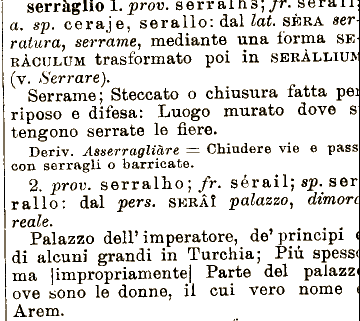 serràglio 1. prov. serralhs; fr. serrail
a. sp. ceraje, serallo: dal lat. SÈRA ser-
ratura, serrame, mediante una forma SE-
RÀCULUM trasformato poi in SERÀLLIUM
(v. Serrare).
Serrame; Steccato o chiusura fatta per
riposo e difesa: Luogo murato dove s
tengono serrate le fiere.
Deriv. Asserragliàre = Chiudere vie e pass
con serragli o barricate.
2. prov. serralho; fr. sérail; sp. ser
rallo: dal pers. SERÂÎ palazzo, dimora
reale.
Palazzo dell'imperatore, de' principi e
di alcuni grandi in Turchia; Più spesso
ma |impropriamente| Parte del palazzo
ove sono le donne, il cui vero nome è
Arem.